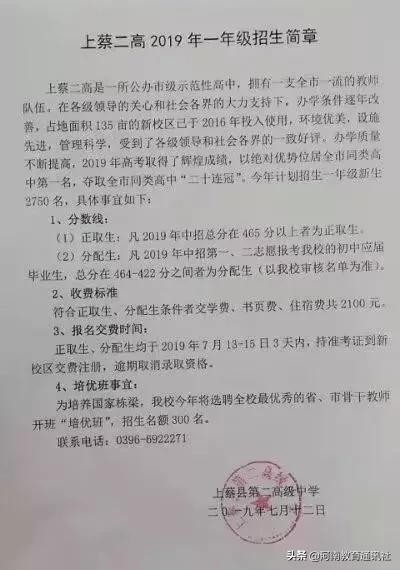 上蔡二高 2019 年一年级招生简章
上蔡二高是一所公办市级示范性高中，拥有一支全市一流的教师
队伍。在各级领导的关心和社会各界的大力支持下，办学条件逐年改
善，占地面积 135 亩的新校区已于 2016 年投入使用，环境优美，设施
先进，管理科学，受到了各级领导和社会各界的一致好评。办学质量
不断提高，2019 年高考取得了辉煌成绩，以绝对优势位居全市同类高
中第一名，夺取全市同类高中“二十连冠”。今年计划招生一年级新生
2750 名，具体事宜如下：
1、分数线：
（1）正取生：凡 2019 年中招总分在 465 分以上者为正取生。
（2）分配生：凡 2019 年中招第一、二志愿报考我校的初中应届
毕业生，总分在 464-422 分之间者为分配生（以我校审核名单为准）。
2、收费标准
符合正取生、分配生条件者交学费、书页费、住宿费共 2100 元。
3、报名交费时间：
正取生、分配生均于 2019 年 7 月 13-15 日 3 天内，持准考证到新
校区交费注册，逾期取消录取资格。
4、培优班事宜：
为培养国家栋梁，我校今年将选聘全校最优秀的省、市骨干教师
开班“培优班”，招生名额 300 名。
联系电话：0396-6922271
上蔡县第二高级中学
二〇一九年七月十二日
头条 @河南教育通讯社